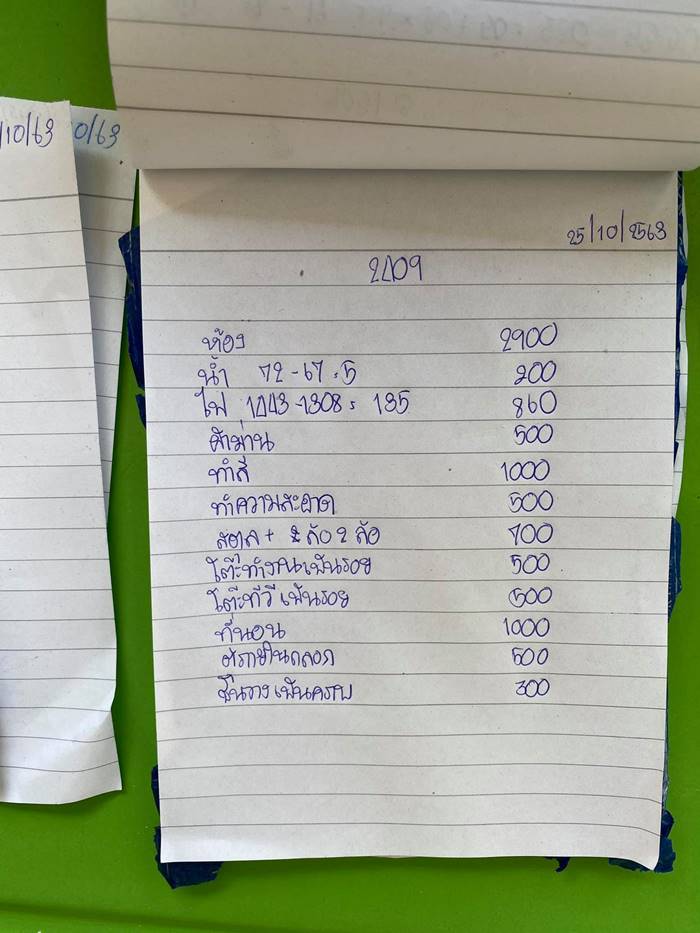 /10/63
0/63
25/10/2563
2409
ห้อง 2900
น้ำ 72-67=5 200
ไฟ 1443-1308= 135 860
ผ้าม่าน 500
ทำสี 1000
ทำความสะอาด 500
+ 2 ล้อ 700
โต๊ะทำงานเป็นรอย 500
โต๊ะทีวีเป็นรอย 500
ที่นอน 1000
500
ชั้นวางเป็นคราบ 300